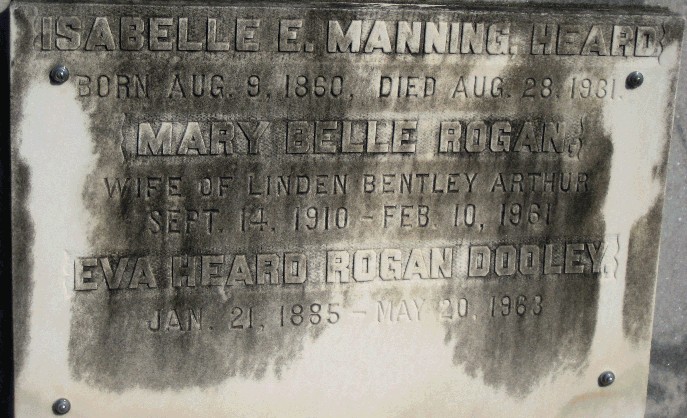 ISABELLE E. MANNING HEARD
BORN AUG. 9, 1860, DIED AUG. 28, 1931.
MARY BELLE ROGAN
WIFE OF LINDEN BENTLEY ARTHUR
SEPT. 14, 1910 – FEB. 10, 1961
EVA HEARD ROGAN DOOLEY
JAN. 21, 1885 – MAY 20, 1963